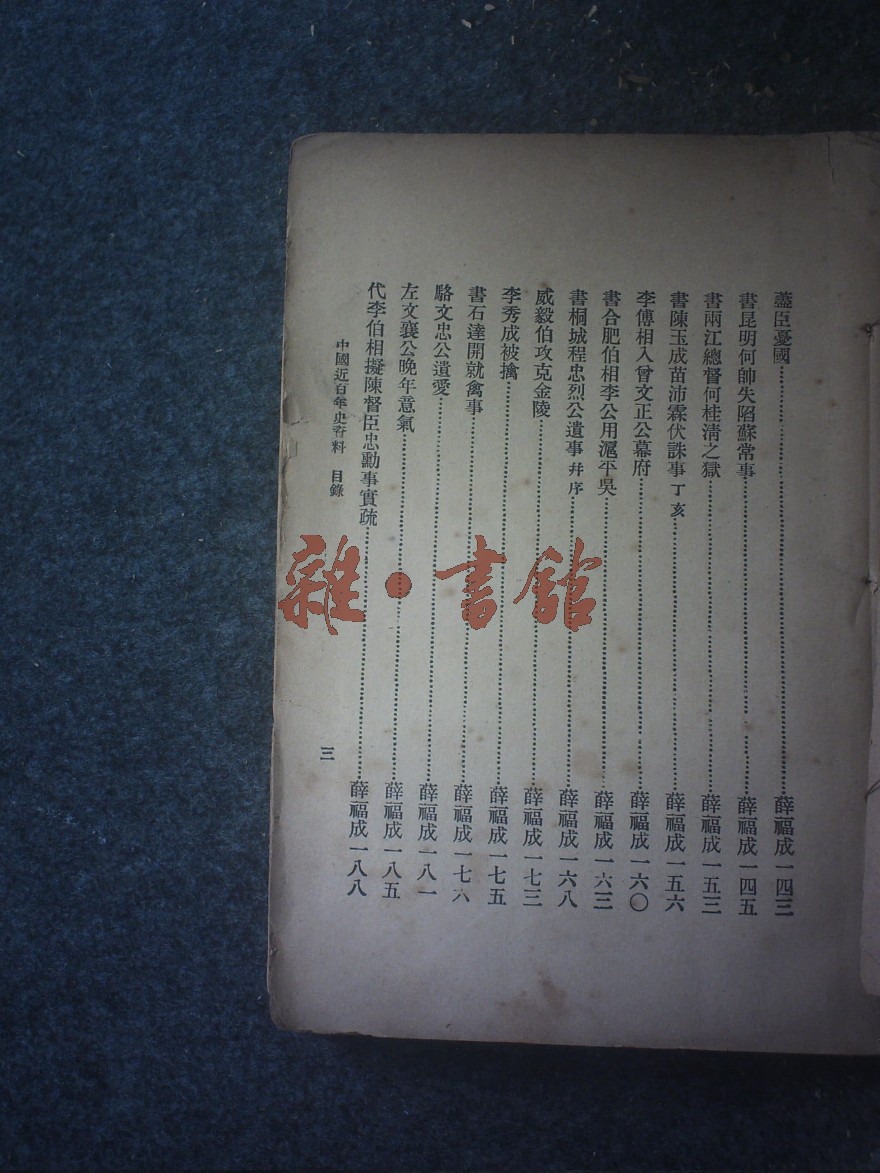 藎臣憂國……薛福成一四三
書昆明何帥失陷蘇常事……薛福成一四五
書兩江總督何桂清之獄……薛福成一五三
書陳玉成苗沛霖伏誅事 丁亥……薛福成一五六
李傅相入曾文正公幕府……薛福成一六〇
書合肥伯相李公用滬平吳……薛福成一六三
書桐城程忠烈公遺事 幷序……薛福成一六八
威毅伯攻克金陵……薛福成一七三
李秀成被擒……薛福成一七五
書石達開就禽事……薛福成一七六
駱文忠公遺愛……薛福成一八一
左文襄公晚年意氣……薛福成一八五
代李伯相擬陳督臣忠勳事實疏……薛福成一八八
中國近百年史資料 目錄
三
雜·書館